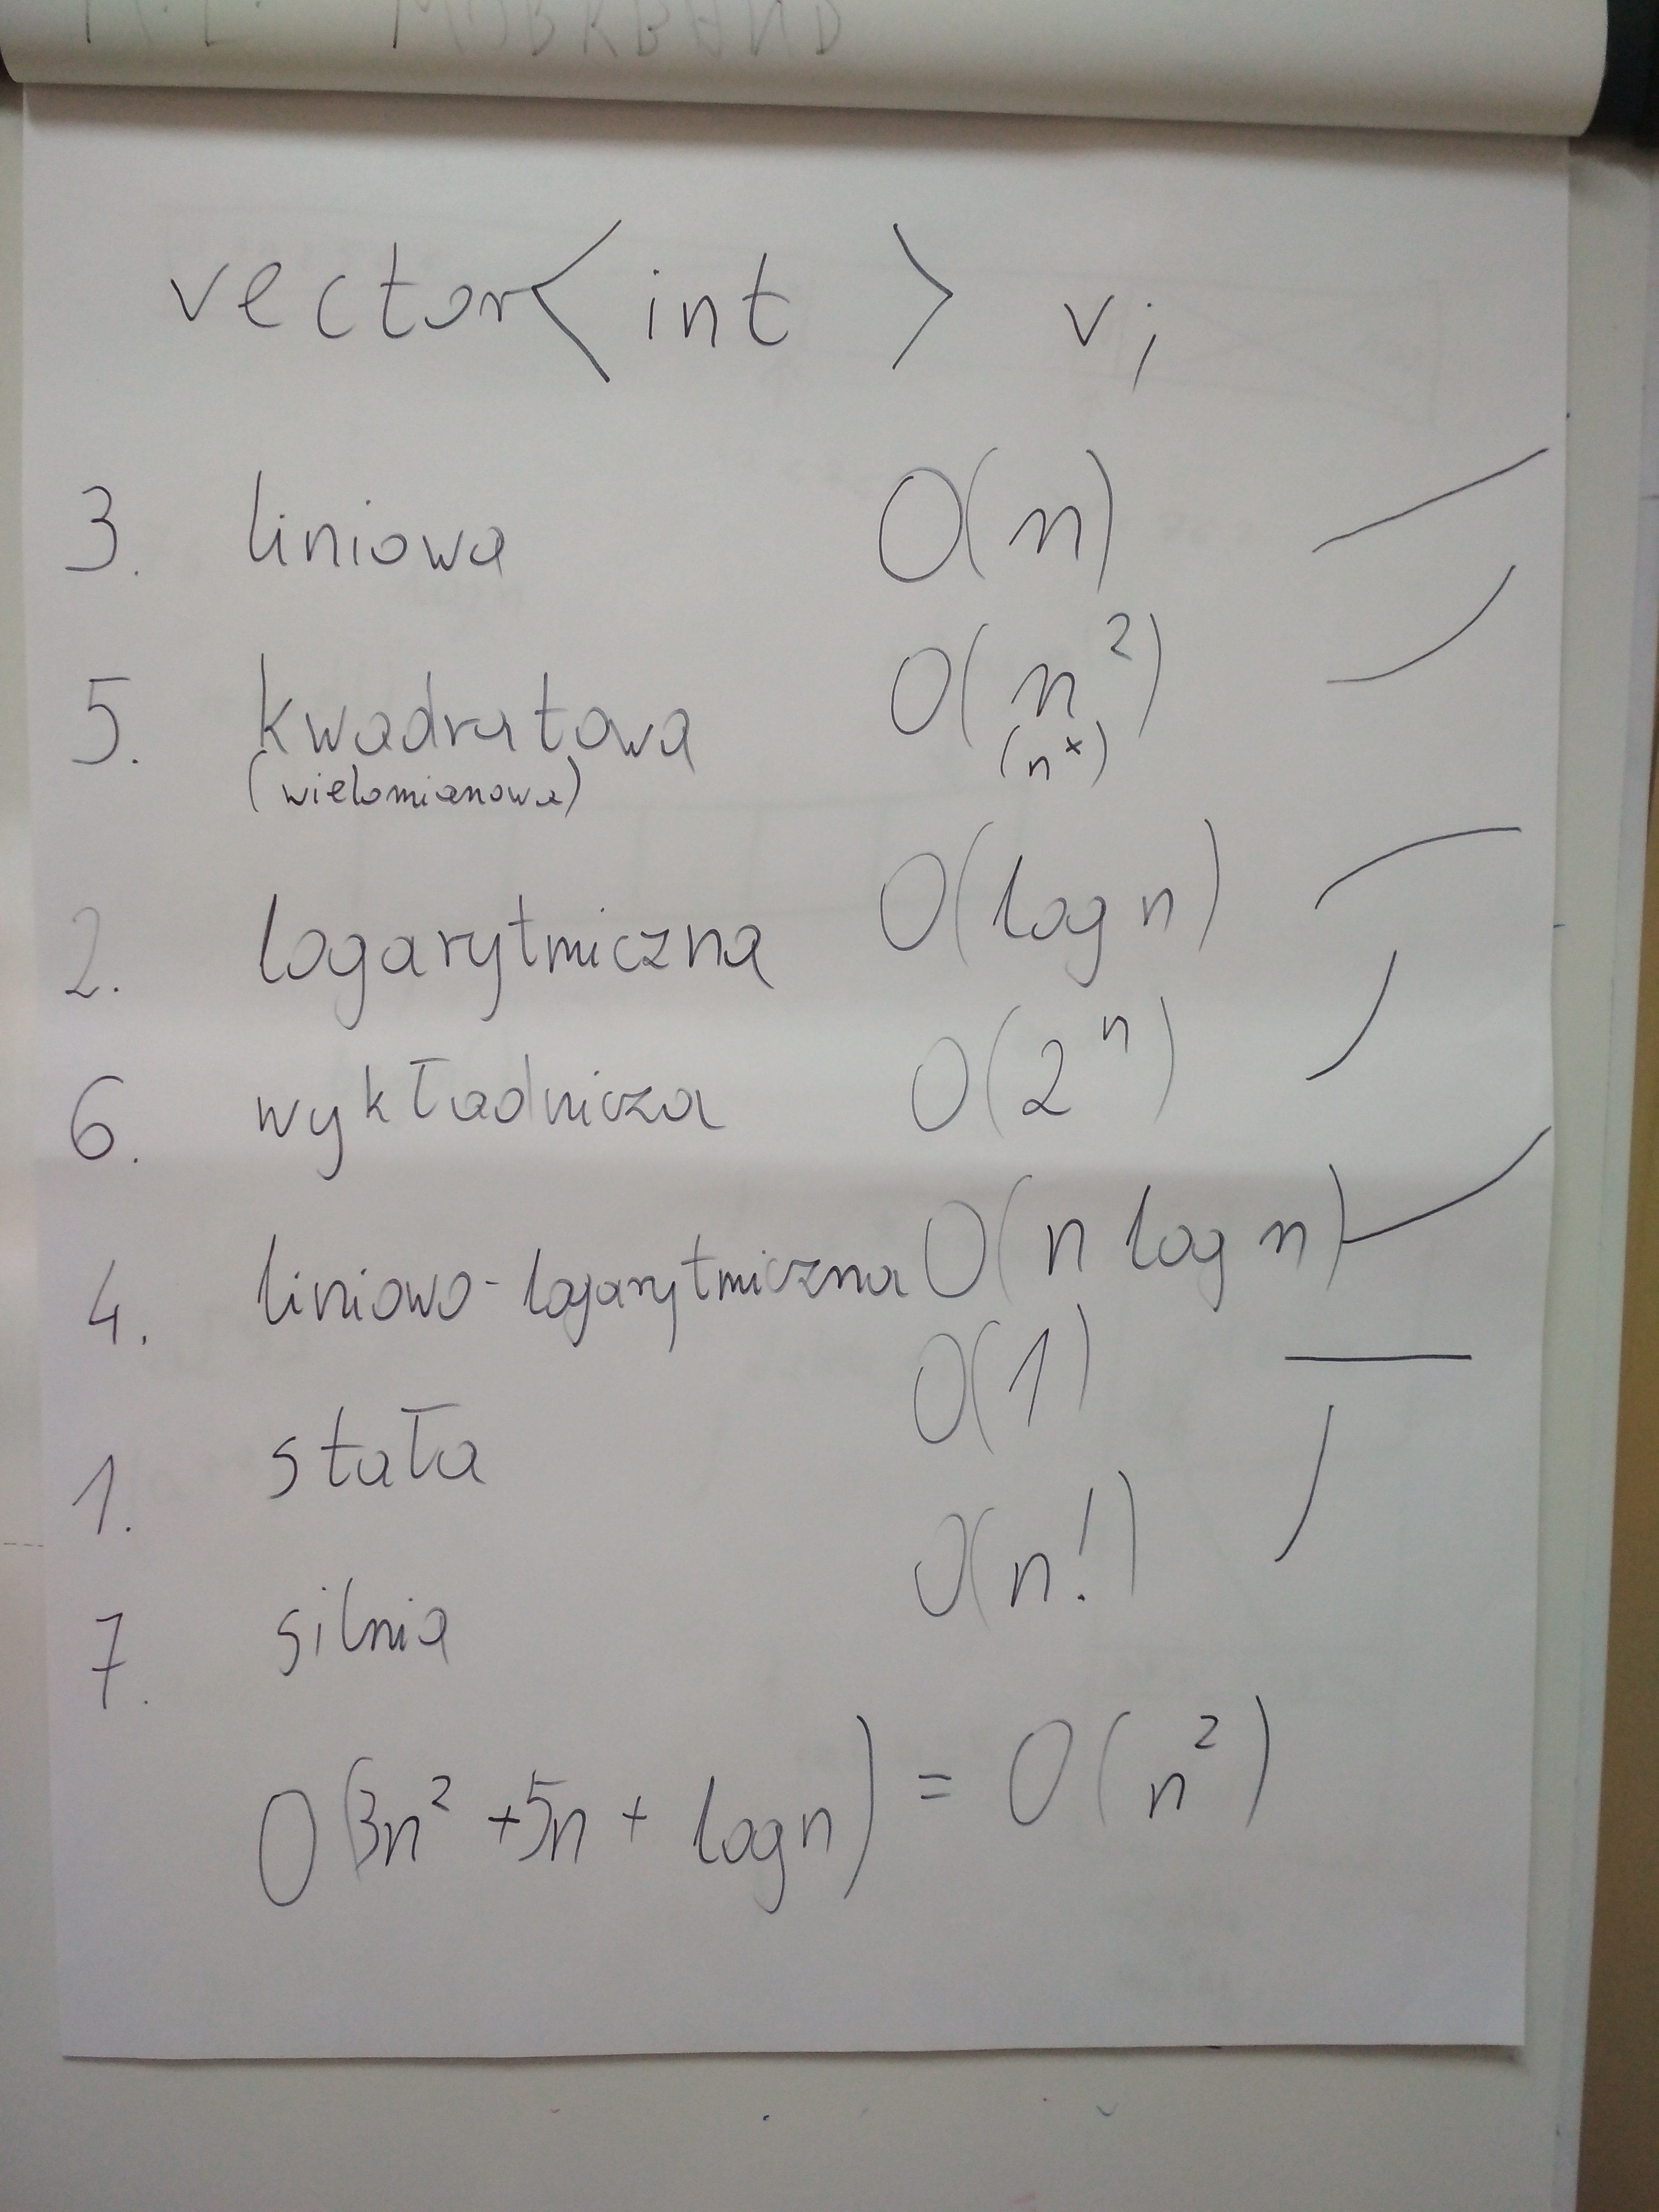 vector<int> v;
3. liniowa O(n)
5. kwadratowa O(n²)
(wielomianowa) (nˣ)
2. logarytmiczna O(log n)
6. wykładnicza O(2ⁿ)
4. liniowo-logarytmiczna O(n log n)
1. stała O(1)
7. silnia O(n!)
O(3n² + 5n + log n) = O(n²)